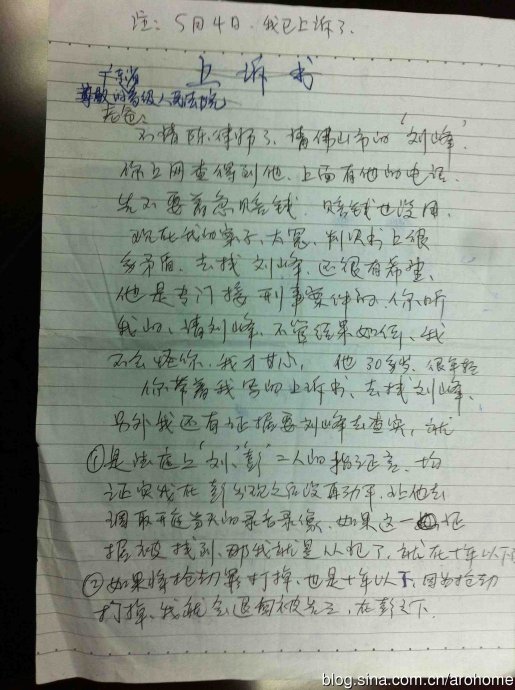 注：5月4日，我已上诉了.
上诉书
广东省
尊敬的高级人民法院
老爸：
不请陈律师了、请佛山市的'刘峰'.
你上网查得到他、上面有他的电话.
先不要着急赔钱. 赔钱也没用.
现在我的案子、太冤、判决书上很
多矛盾. 去找刘峰、还很有希望、
他是专门接刑事案件的. 你听
我的、请刘峰、不管结果如何、我
不会怪你、我才甘心. 他30多岁、很年轻
你带着我写的上诉书、去找刘峰、
另外我还有证据要刘峰去查实，就
①是法庭上"刘""彭"二人的指证言、均
证实我在彭出现之后没再动手、让他去
调取开庭当天的录音录像、如果这一证
据被找到、那我就是从犯了、就在十年以下
②如果将抢劫罪打掉、也是十年以下、因为抢劫
打掉、我就会返回被告三、在彭之下.
blog.sina.com.cn/arohome